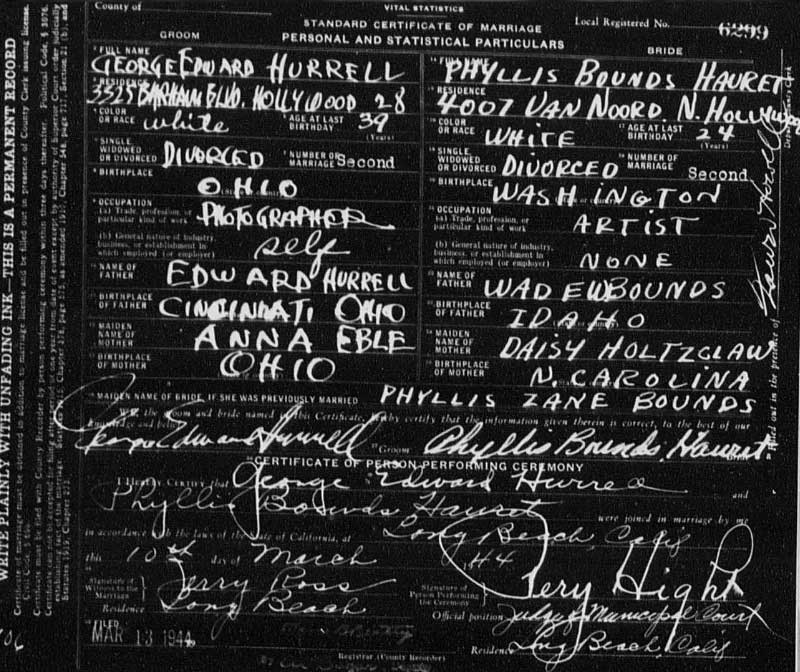 County of
VITAL STATISTICS
STANDARD CERTIFICATE OF MARRIAGE
Local Registered No. 6299
PERSONAL AND STATISTICAL PARTICULARS
GROOM
BRIDE
FULL NAME GEORGE EDWARD HURRELL
FULL NAME PHYLLIS BOUNDS HAURET
RESIDENCE 3325 BARHAM BLVD. HOLLYWOOD 28
RESIDENCE 4007 VAN NOORD. N. HOLLYWOOD
COLOR OR RACE white AGE AT LAST BIRTHDAY 39 (Years)
COLOR OR RACE WHITE AGE AT LAST BIRTHDAY 24 (Years)
SINGLE WIDOWED OR DIVORCED DIVORCED NUMBER OF MARRIAGE Second
SINGLE WIDOWED OR DIVORCED DIVORCED NUMBER OF MARRIAGE Second
BIRTHPLACE OHIO
BIRTHPLACE WASHINGTON
OCCUPATION
(a) Trade, profession, or particular kind of work PHOTOGRAPHER
OCCUPATION
(a) Trade, profession, or particular kind of work ARTIST
(b) General nature of industry, business, or establishment in which employed (or employer) self
(b) General nature of industry, business, or establishment in which employed (or employer) NONE
NAME OF FATHER EDWARD HURRELL
NAME OF FATHER WADE W BOUNDS
BIRTHPLACE OF FATHER CINCINNATI OHIO
BIRTHPLACE OF FATHER IDAHO
MAIDEN NAME OF MOTHER ANNA EBLE
MAIDEN NAME OF MOTHER DAISY HOLTZGLAW
BIRTHPLACE OF MOTHER OHIO
BIRTHPLACE OF MOTHER N. CAROLINA
MAIDEN NAME OF BRIDE, IF SHE WAS PREVIOUSLY MARRIED PHYLLIS ZANE BOUNDS
We, the groom and bride named in this Certificate, hereby certify that the information given therein is correct, to the best of our
knowledge and belief.
George Edward Hurrell Groom Phyllis Bounds Hauret
CERTIFICATE OF PERSON PERFORMING CEREMONY
I HEREBY CERTIFY that George Edward Hurrell and
Phyllis Bounds Hauret were joined in marriage by me
in accordance with the laws of the State of California, at Long Beach, Calif
this 10th day of March 44
Signature of Witness to the Marriage Jerry Ross
Signature of Person Performing the Ceremony Pery Hight
Residence Long Beach
Official position Judge of Municipal Court
FILED MAR 13 1944
Residence Long Beach, Calif
Registrar (County Recorder)
WRITE PLAINLY WITH UNFADING INK—THIS IS A PERMANENT RECORD
Filled out in the presence of